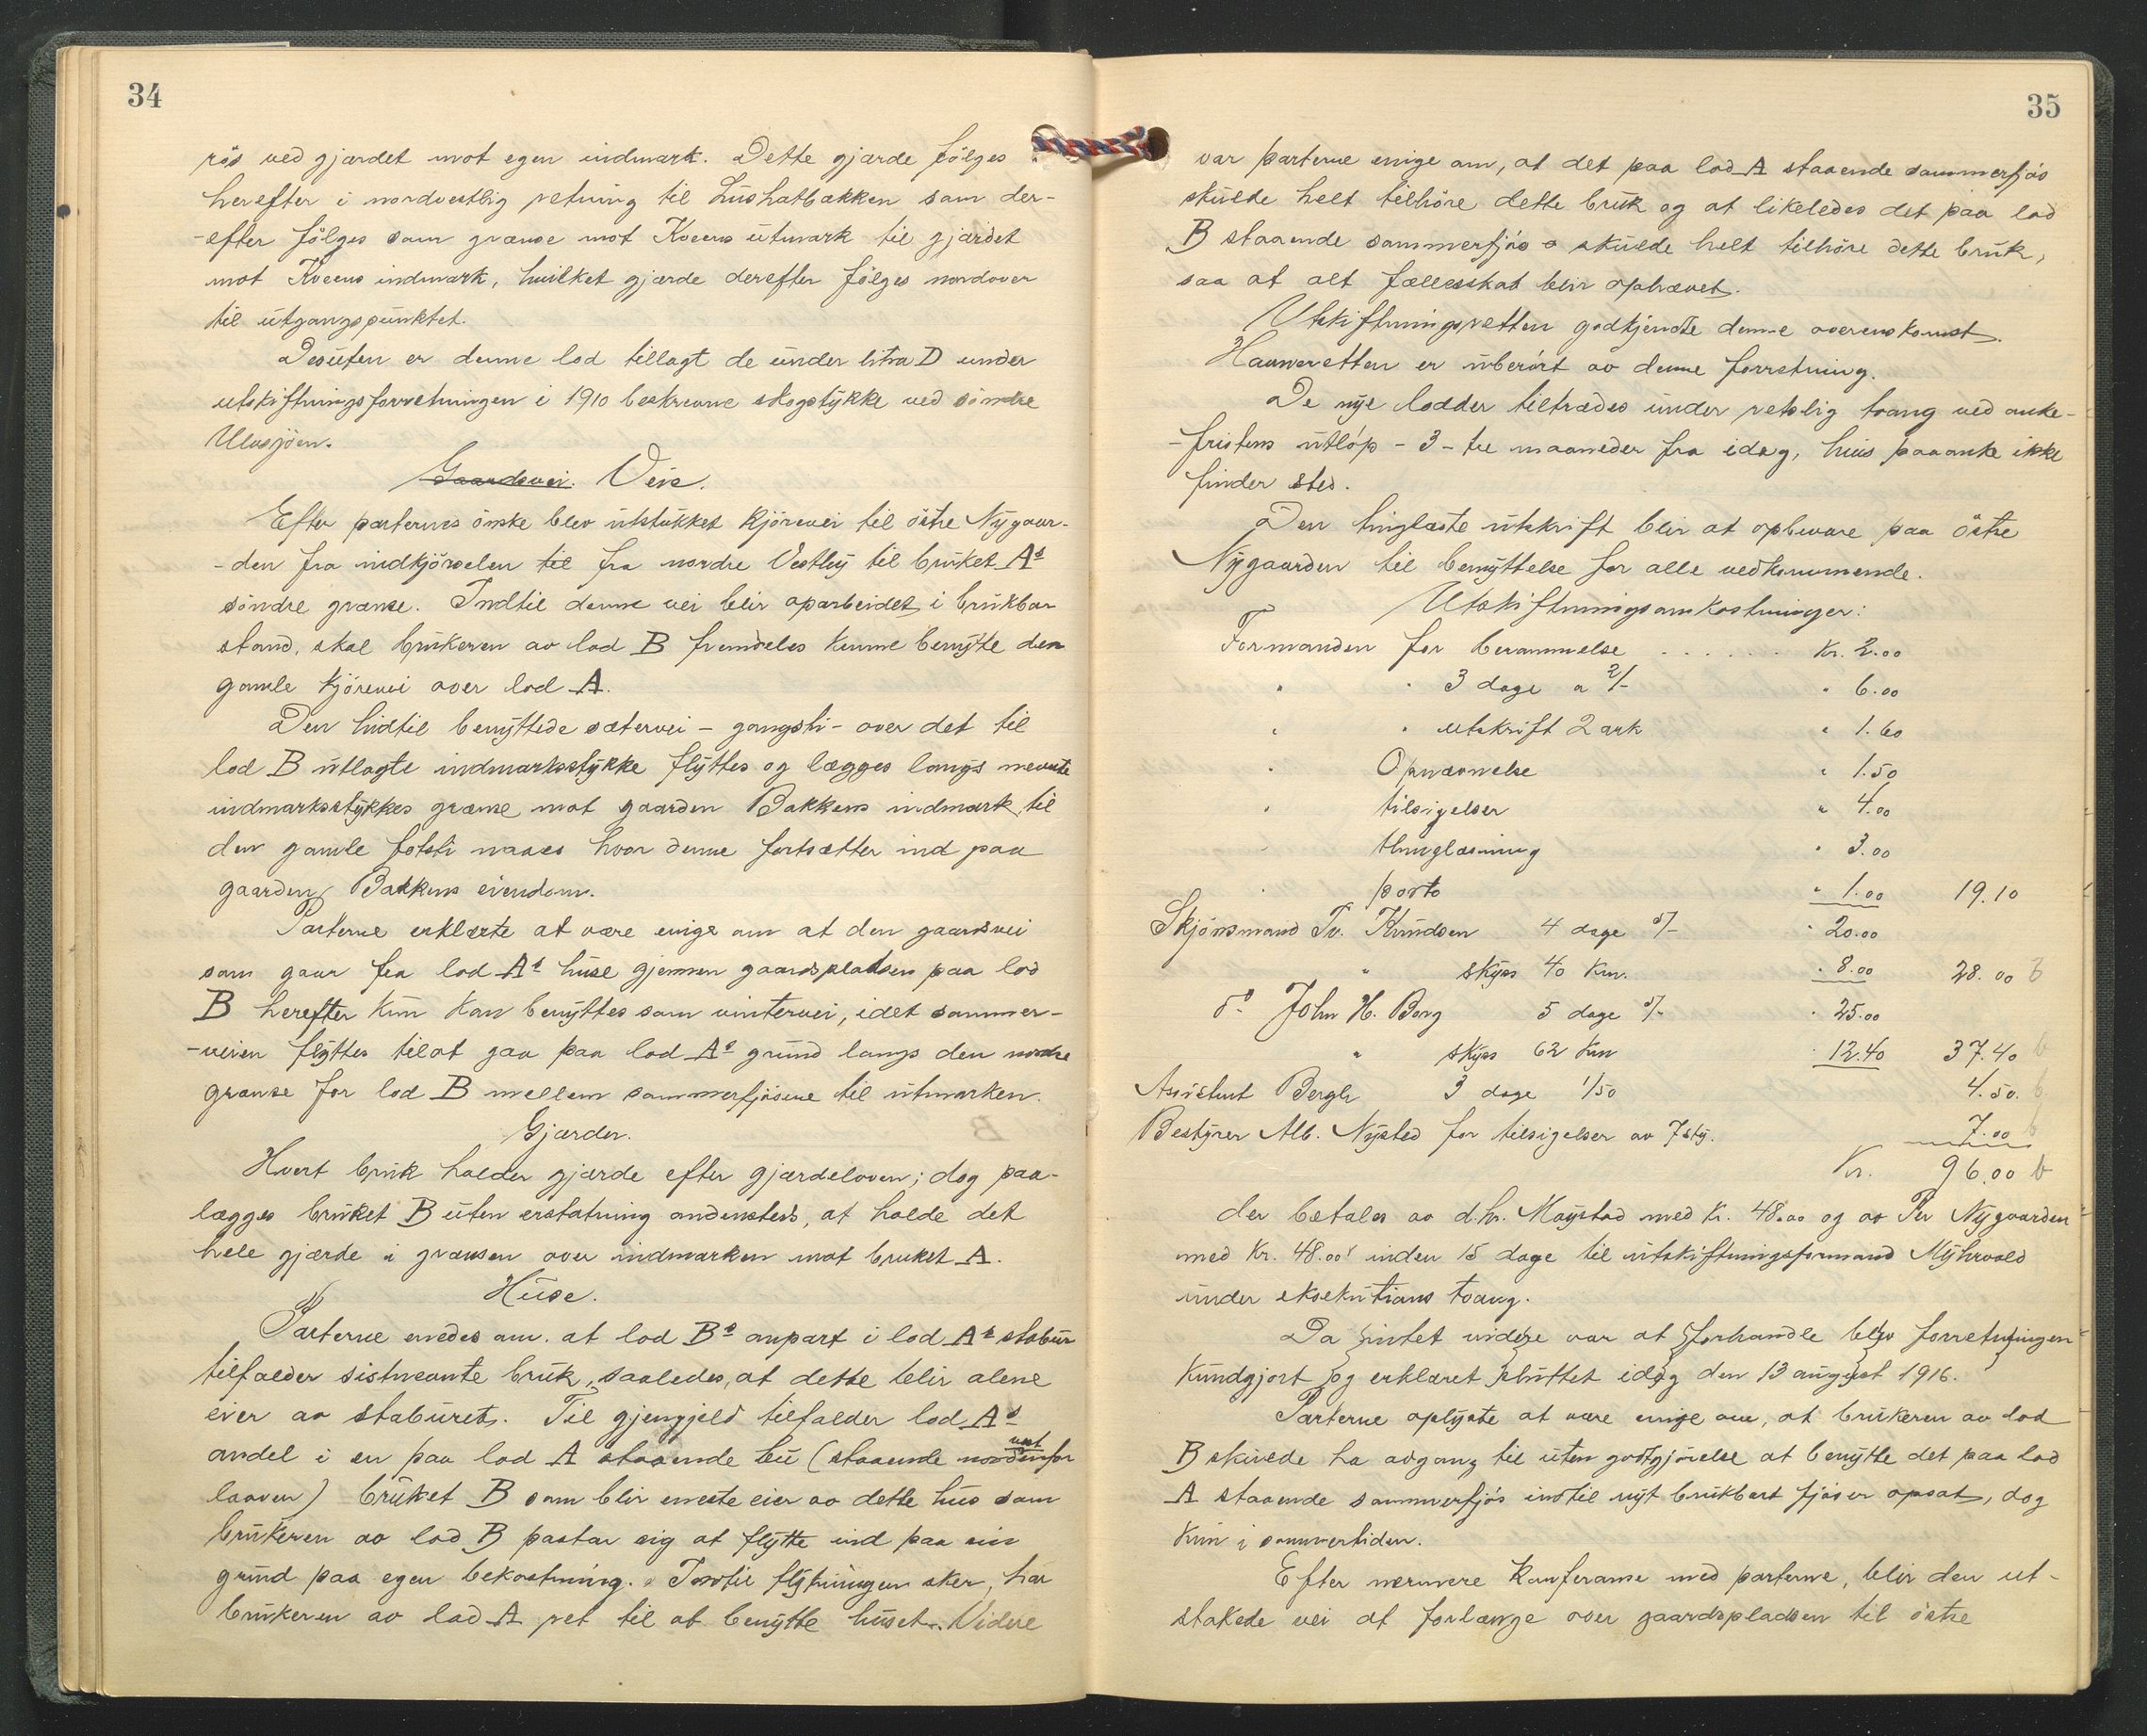 34
rös ved gjærdet mot egen indmark. Dette gjærde fölges
herefter i nordvestlig retning til Lushatbækken som der-
-efter fölges som grænse mot Kveens utmark til gjærdet
mot Kveens indmark, hvilket gjærde derefter fölges nordover
til utgangspunktet.
Desuten er denne lod tillagt de under litra D under
utskiftningsforretningen i 1910 beskrevne skogstykke ved söndre
Ulvsjöen.
Gaardsvei. Veie.
Efter parternes önske blev utstukket kjörevei til östre Nygaar-
-den fra indkjörselen til fra nordre Vestby til bruket As
söndre grænse. Indtil denne vei blir oparbeidet i brukbar
stand, skal brukeren av lod B fremdeles kunne benytte den
gamle kjörevei over lod A.
Den hidtil benyttede sætervei - gangsti - over det til
lod B utlagte indmarksstykke flyttes og lægges langs nevnte
indmarksstykkes grænse mot gaarden Bakkens indmark til
den gamle fotsti naaes hvor denne fortsætter ind paa
gaarden Bakkens eiendom.
Parterne erklærte at være enige om at den gaardsvei
som gaar fra lod As huse gjennem gaardspladsen paa lod
B herefter kun kan benyttes som vintervei, idet sommer-
-veien flyttes til at gaa paa lod As grund langs den nordre
grænse for lod B mellem sommerfjösene til utmarken.
Gjærder.
Hvert bruk holder gjærde efter gjærdeloven; dog paa-
lægges bruket B uten erstatning andensteds, at holde det
hele gjærde i grænsen over indmarken mot bruket A.
Huse.
Parterne enedes om. at lod Bs anpart i lod As stabur
tilfalder sistnevnte bruk, saaledes, at dette blir alene
eier av staburet. Til gjengjeld tilfalder lod As
andel i en paa lod A staaende bu (staaende nordenfor
vest
laaven) bruket B som blir eneste eier av dette hus som
brukeren av lod B paatar sig at flytte ind paa sin
grund paa egen bekostning. Indtil flytningen sker, har
brukeren av lod A ret til at benytte huset. Videre
35
var parterne enige om, at det paa lod A staaende sommerfjös
skulde helt tilhöre dette bruk og at likeledes det paa lod
B staaende sommerfjös skulde helt tilhöre dette bruk,
saa at alt fællesskab blir ophævet.
Utskiftningsretten godkjendte denne overenskomst.
Havneretten er uberört av denne forretning.
De nye lodder tiltrædes under retslig tvang ved anke-
-fristens utlöp - 3 - tre maaneder fra idag, hvis paaanke ikke
finder sted.
Den tinglæste utskrift blir at opbevare paa östre
Nygaarden til benyttelse for alle vedkommende.
Utskiftningsomkostninger:
Formanden for berammelse . . . . . . Kr. 2.00
" " 3 dage a 2/- " 6.00
" " utskrift 2 ark " 1.60
" Opnævnelse " 1.50
" tilsigelser " 4.00
" thinglæsning " 3.00
" porto " 1.00 19.10
Skjönsmand Tv. Knudsen 4 dage 5/- " 20.00
" skyss 40 Km. " 8.00 28.00 b
do John H. Berg 5 dage 5/- " 25.00
" skyss 62 Km " 12.40 37.40 b
Assistent Bergh 3 dage 1/50 4.50. b
Bestyrer Alb. Nysted for tilsigelser av 7 sty. 7.00 b
Kr. 96.00 b
der betales av d.hr. Moystad med Kr. 48.00 og av Per Nygaarden
med Kr. 48.00 inden 15 dage til utskiftningsformand Myhrvold
under eksekutions tvang.
Da intet videre var at forhandle blev forretningen
kundgjort og erklæret sluttet idag den 13 august 1916.
Parterne oplyste at være enige om, at brukeren av lod
B skulde ha adgang til uten godtgjörelse at benytte det paa lod
A staaende sommerfjös indtil nyt brukbart fjös er opsat, dog
kun i sommertiden.
Efter nermere konferanse med parterne, blir den ut-
stakede vei at forlænge over gaardspladsen til östre